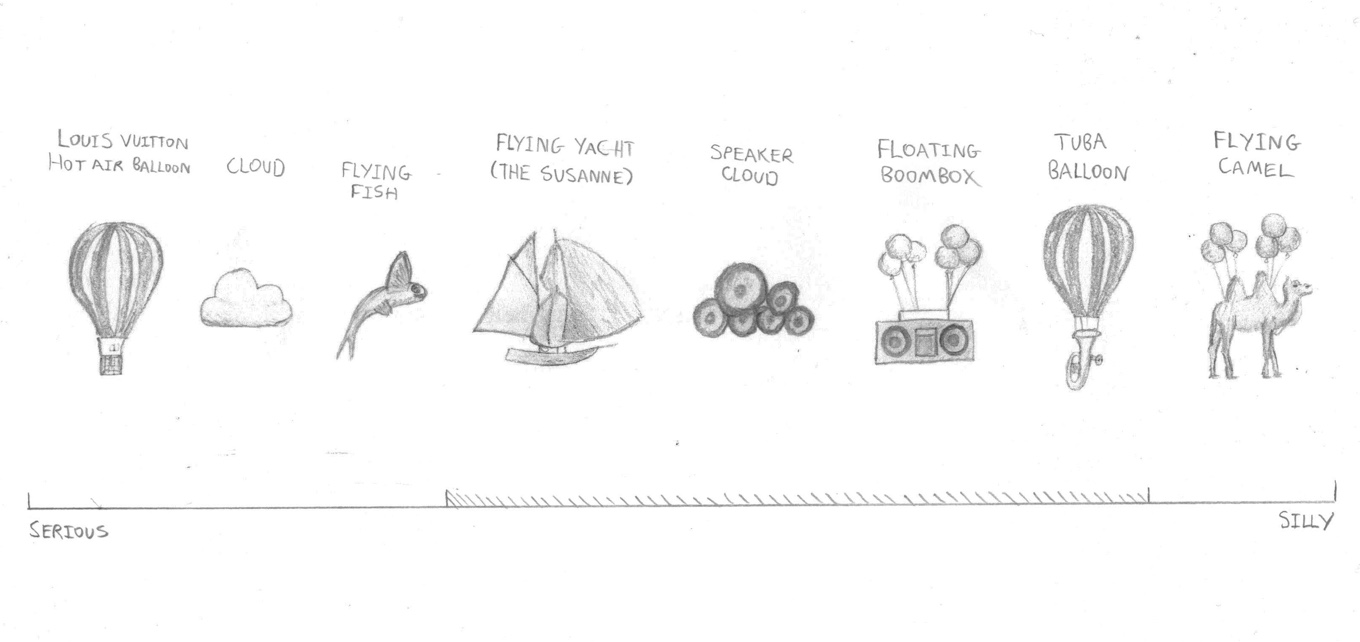 LOUIS VUITTON
HOT AIR BALLOON
CLOUD
FLYING
FISH
FLYING YACHT
(THE SUSANNE)
SPEAKER
CLOUD
FLOATING
BOOMBOX
TUBA
BALLOON
FLYING
CAMEL
SERIOUS
SILLY